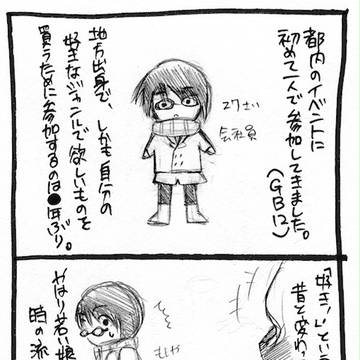 都内のイベントに
初めて一人で参加してきました。
(GB12)
27さい
会社員
地方出身で、しかも自分の
好きなジャンルで欲しいものを
買うために参加するのは●年ぶり。
「好き!」という
昔と変わ
やはり若い娘
時の流